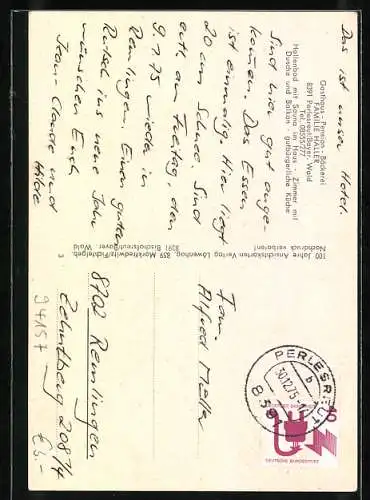 Das ist unser Hotel.
Gasthaus - Pension - Bäckerei
FAMILIE HALLER
8391 Perlesreut/Bayer. Wald
Tel. 08555/277
Hallenbad mit Sauna im Haus - Zimmer mit
Dusche und Balkon - gutbürgerliche Küche
Sind hier gut ange-
kommen. Das Essen
ist einmalig. Hier liegt
20 cm Schnee. Sind
am Freitag, den
9.1.75 wieder in
Remlingen. Einen guten
Rutsch ins neue Jahr
wünschen Euch
Jean-Claude und
Hilde
100 Jahre Ansichtskarten Verlag Löwenhag, 859 Marktredwitz/Fichtelgeb.
8391 Bischofsreut/Bayer. Wald
Nachdruck verboten!
3
PERLESREUT
b
30.12.75
839
5
Fam.
Alfred Müller
8702 Remlingen
Zehntberg 208 1/4
94157
€ 3.-